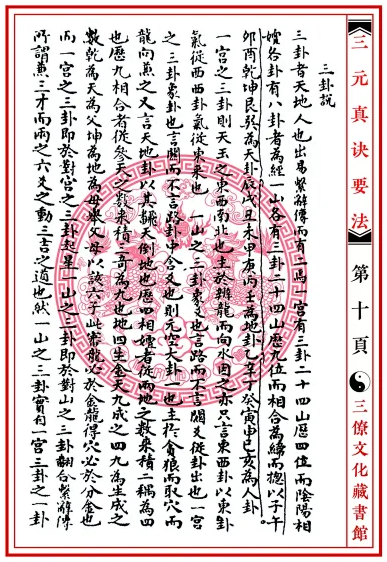 三元真诀要法
第十頁
三僚文化藏書館
三卦説
三卦者天地人也出易繫辭傳而有二焉一宮有三卦二十四山歷四位而陰陽相
嬗各卦有八卦者為經一山各有三卦二十四山歷九位而相合為緯而揔以子午
卯酉乾坤艮巽為天卦辰戌丑未甲庚丙壬為地卦乙辛丁癸寅申巳亥為人卦
一宮之三卦則天玉之東西南北也主於辨龍而向水因之亦只言東西卦以東卦
氣從西西卦氣從東來也一山之三卦爻也言路而不言關爻從卦出也一宮
之三卦象卦也言關而不言路卦中含爻也則元空大卦一也主於貪狼而取穴而
龍向兼之又言天地卦以其翻天倒地也歷四相嬗者從兩地之数来積二稱為四
也歷九相合者從參天之数來積三奇為九也地四生金天九成之四九為生成之
数乾為天為父坤為地為母舉父母以該六子此察龍必於金龍得穴必於分金也
而一宮之三卦即於對宮之三卦起星一山之三卦即於對山之三卦翻合繫辭傳
所謂兼三才而兩之六爻之動三吉之道也然一山之三卦實有一宮三卦之一卦